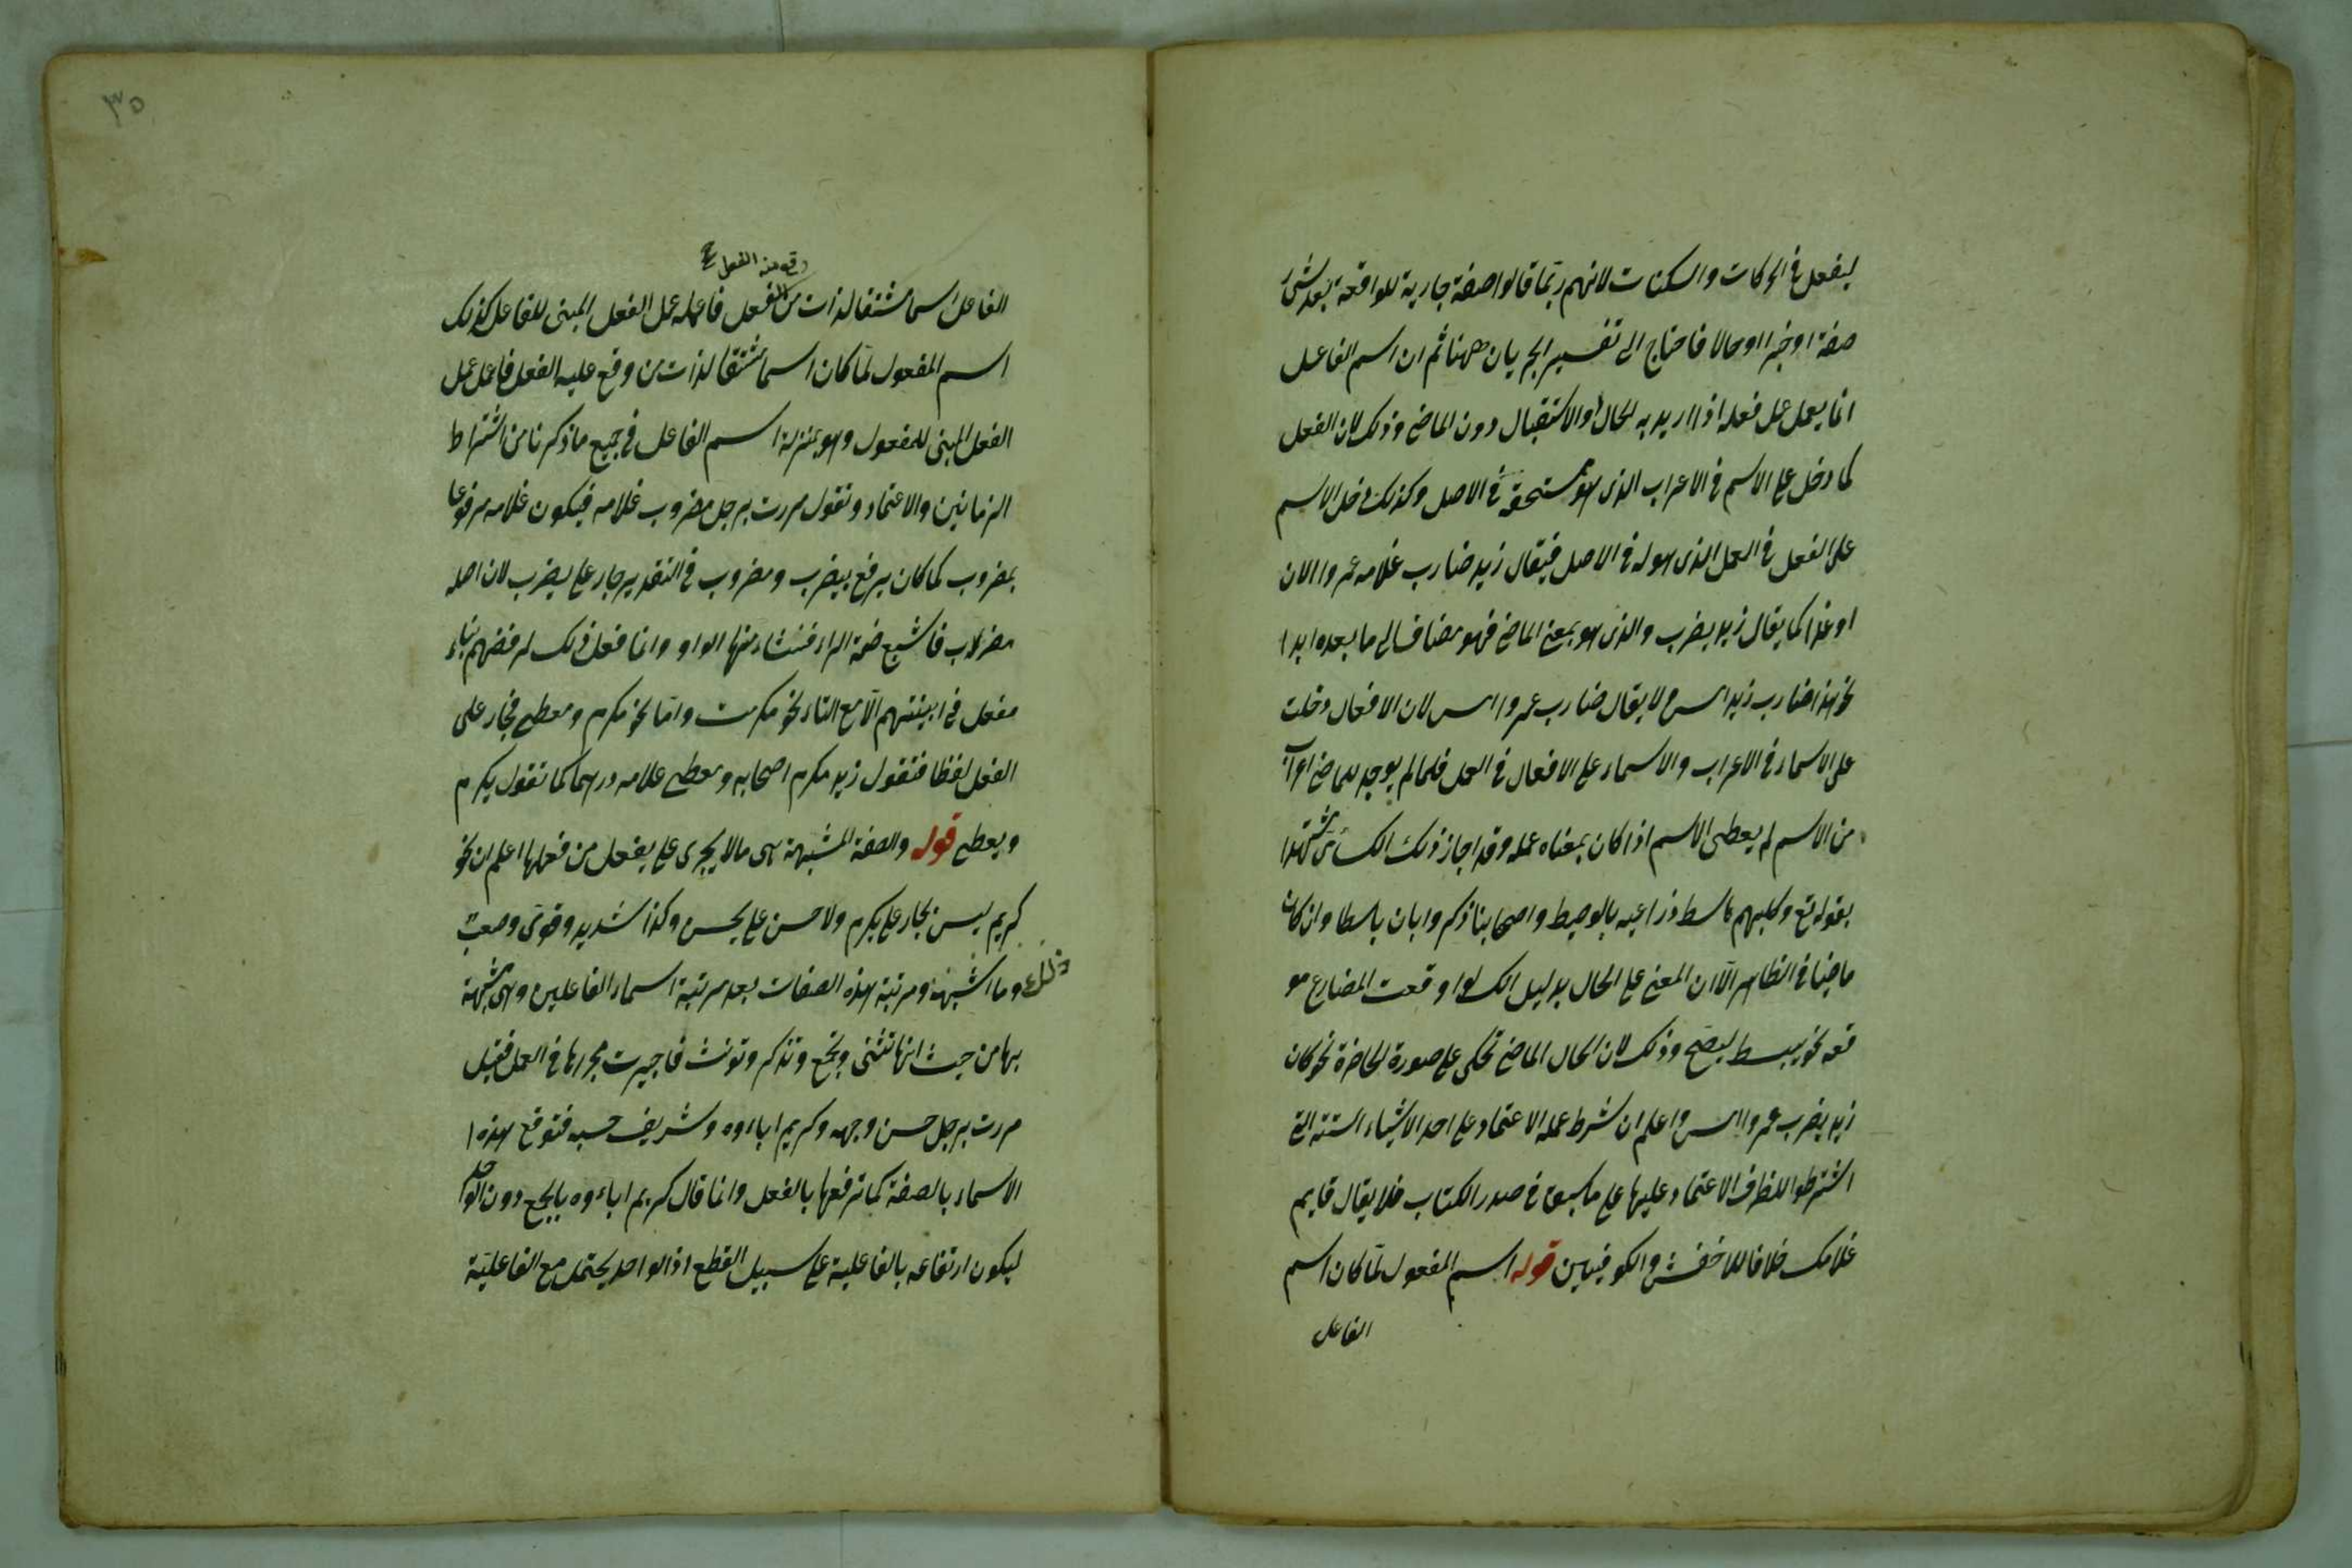 ليفعل فى الحركات والسكنات لانهم ربما قالوا صفة جارية للواقعة بعد شئ
صفة او خبرا او حالا فاحتاج الى تفسير الجريان ههنا ثم ان اسم الفاعل
انما يعمل عمل فعله اذا اريد به الحال او الاستقبال دون الماضى وذلك لان الفعل
كما دخل على الاسم فى الاعراب الذى هو مستحقه فى الاصل وكذلك دخل الاسم
على الفعل فى العمل الذى هو له فى الاصل فيقال زيد ضارب غلامه عمروا الان
او غدا كما يقال زيد يضرب والذى هو بمعنى الماضى فهو مضاف الى ما بعده ابدا
نحو هذا ضارب زيد امس ولا يقال ضارب عمروا امس لان الافعال دخلت
على الاسماء فى الاعراب والاسماء على الافعال فى العمل فلما لم يوجد للماضى اعراب
من الاسم لم يعطى الاسم اذا كان بمعناه عمله وقد اجاز ذلك الكسائى مستشهدا
بقوله تع وكلبهم باسط ذراعيه بالوصيط واصحابنا ذكروا بان باسطا وان كان
ماضيا فى الظاهر الا ان المعنى على الحال بدليل انك لو اوقعت المضارع مو
قعه نحو يبسط ليصح وذلك لان الحال الماضى تحكى على صورة الحاضرة نحو كان
زيد يضرب عمروا امس واعلم ان شرط عمله الاعتماد على احد الاشياء الستة التى
اشترطوا للظرف الاعتماد عليها على ما سبق فى صدر الكتاب فلا يقال قايم
غلامك خلافا للاخفش والكوفيين قوله اسم المفعول لما كان اسم
الفاعل
٣٥
وقع منه الفعل صح
الفاعل اسما مشتقا لذات من الفعل فاعمله عمل الفعل المبنى للفاعل كذلك
اسم المفعول لما كان اسما مشتقا لذات من وقع عليه الفعل فاعمل عمل
الفعل المبنى للمفعول وهو بمنزلة اسم الفاعل فى جميع ما ذكرنا من اشتراط
الزمانين والاعتماد وتقول مررت برجل مضروب غلامه فيكون غلامه مرفوعا
بمضروب كما كان يرفع بيضرب ومضروب فى التقدير جار على يضرب لان اصله
مضرب فاشبع ضمة الراء فنشاء منها الواو وانما فعل ذلك لرفضهم بناء
مفعل فى ابنيتهم الا مع التاء نحو مكرمت واما نحو مكرم ومعطى فجار على
الفعل لفظا فتقول زيد مكرم اصحابه ومعطى غلامه درهما كما تقول يكرم
ويعطى قوله والصفة المشبهة هى ما لا يجرى على يفعل من فعلها اعلم ان نحو
كريم ليس بجار على يكرم ولا حسن على يحسن وكذا شديد وقوى وصعب
وما اشبه ذلك ومرتبة هذه الصفات بعد مرتبة اسماء الفاعلين وهى مشبهة
بها من حيث انها تثنى وتجمع وتذكر وتونث فاجريت مجراها فى العمل فقيل
مررت برجل حسن وجهه وكريم اباءوه وشريف حسبه فترفع هذه ا
الاسماء بالصفة كما ترفعها بالفعل وانما قال كريم اباءوه بالجمع دون الواحد
ليكون ارتفاعه بالفاعلية على سبيل القطع اذ الواحد يحتمل مع الفاعلية